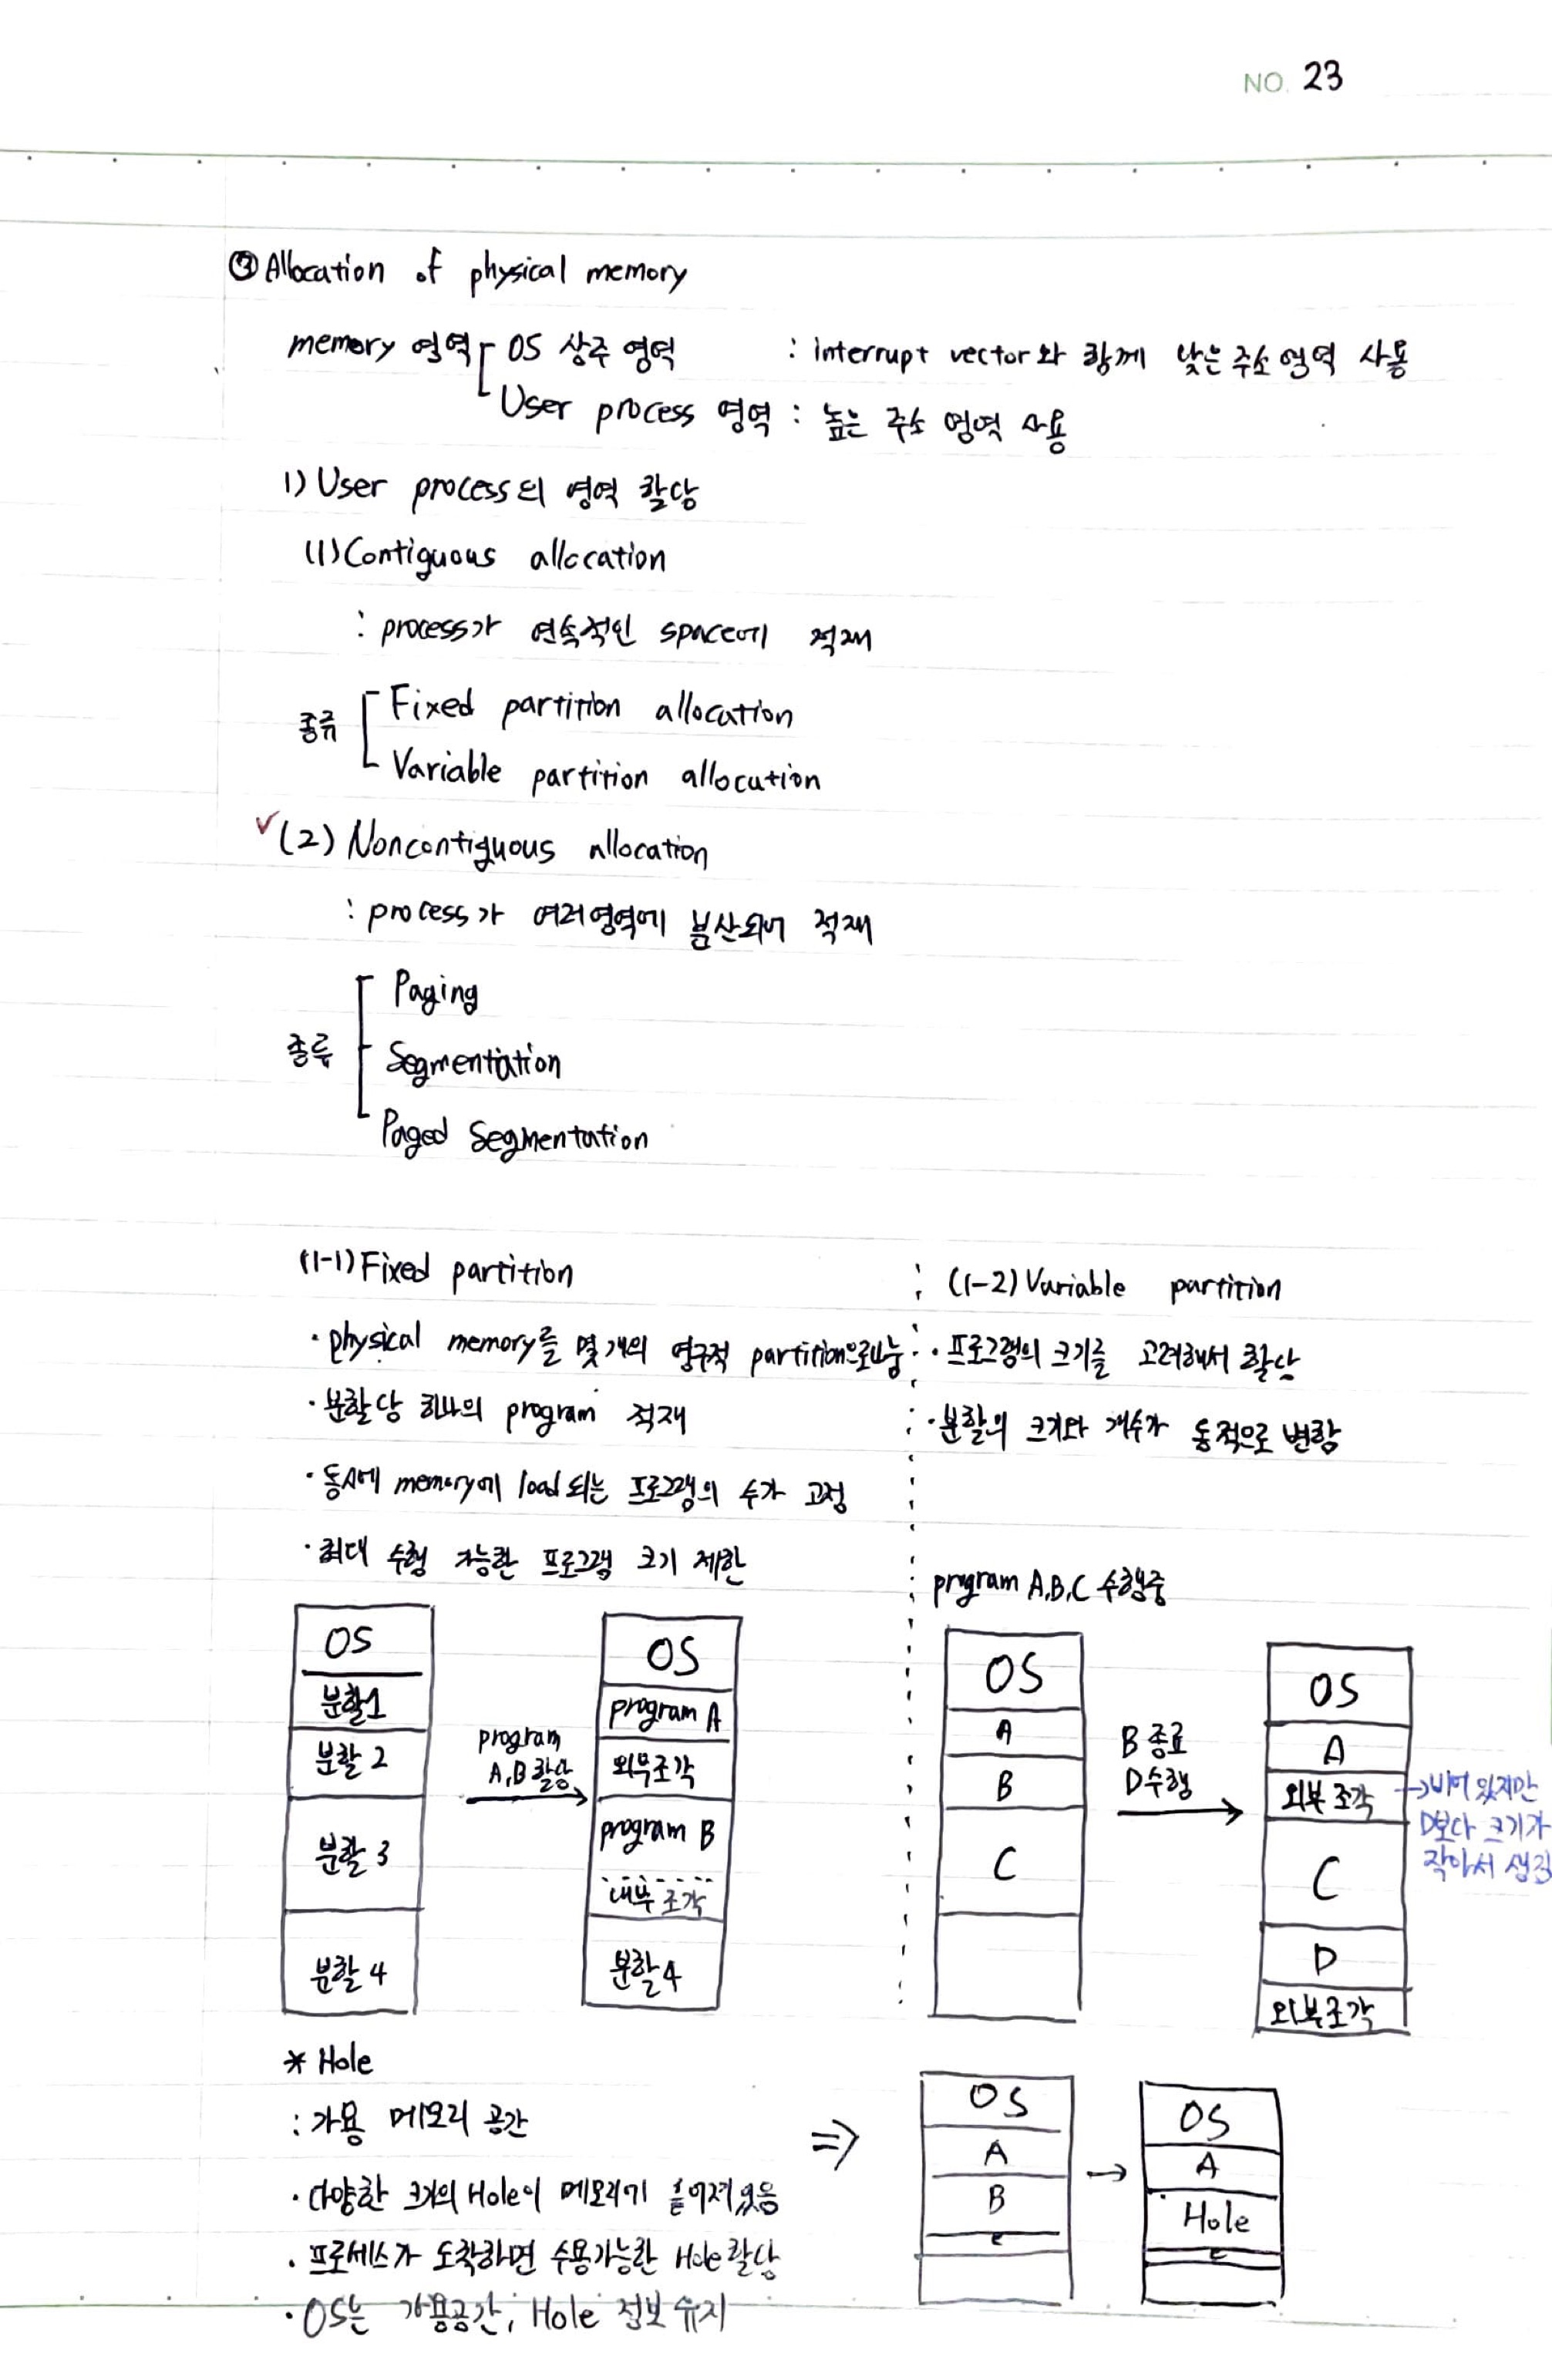 NO. 23
③ Allocation of physical memory
memory 영역 OS 상주 영역 : interrupt vector와 함께 낮은 주소 영역 사용
User process 영역 : 높은 주소 영역 사용
1) User process의 영역 할당
(1) Contiguous allocation
: process가 연속적인 space에 적재
종류 Fixed partition allocation
Variable partition allocation
(2) Noncontiguous allocation
: process가 여러영역에 분산되어 적재
종류 Paging
Segmentation
Paged Segmentation
(1-1) Fixed partition
· physical memory를 몇개의 영구적 partition으로나눔
· 분할당 하나의 program 적재
· 동시에 memory에 load되는 프로그램의 수가 고정
· 최대 수행 가능한 프로그램 크기 제한
OS
분할1
분할 2
분할 3
분할 4
program
A,B 할당
OS
program A
외부조각
program B
내부 조각
분할4
(1-2) Variable partition
· 프로그램의 크기를 고려해서 할당
· 분할의 크기와 개수가 동적으로 변함
program A,B,C 수행중
OS
A
B
C
B 종료
D수행
OS
A
외부 조각
C
D
외부조각
→비어 있지만
D보다 크기가
작아서 생김
* Hole
: 가용 메모리 공간
· 다양한 크기의 Hole이 메모리에 흩어져있음
· 프로세스가 도착하면 수용가능한 Hole 할당
· OS는 가용공간, Hole 정보 유지
⇒
OS
A
B
C
→
OS
A
Hole
C